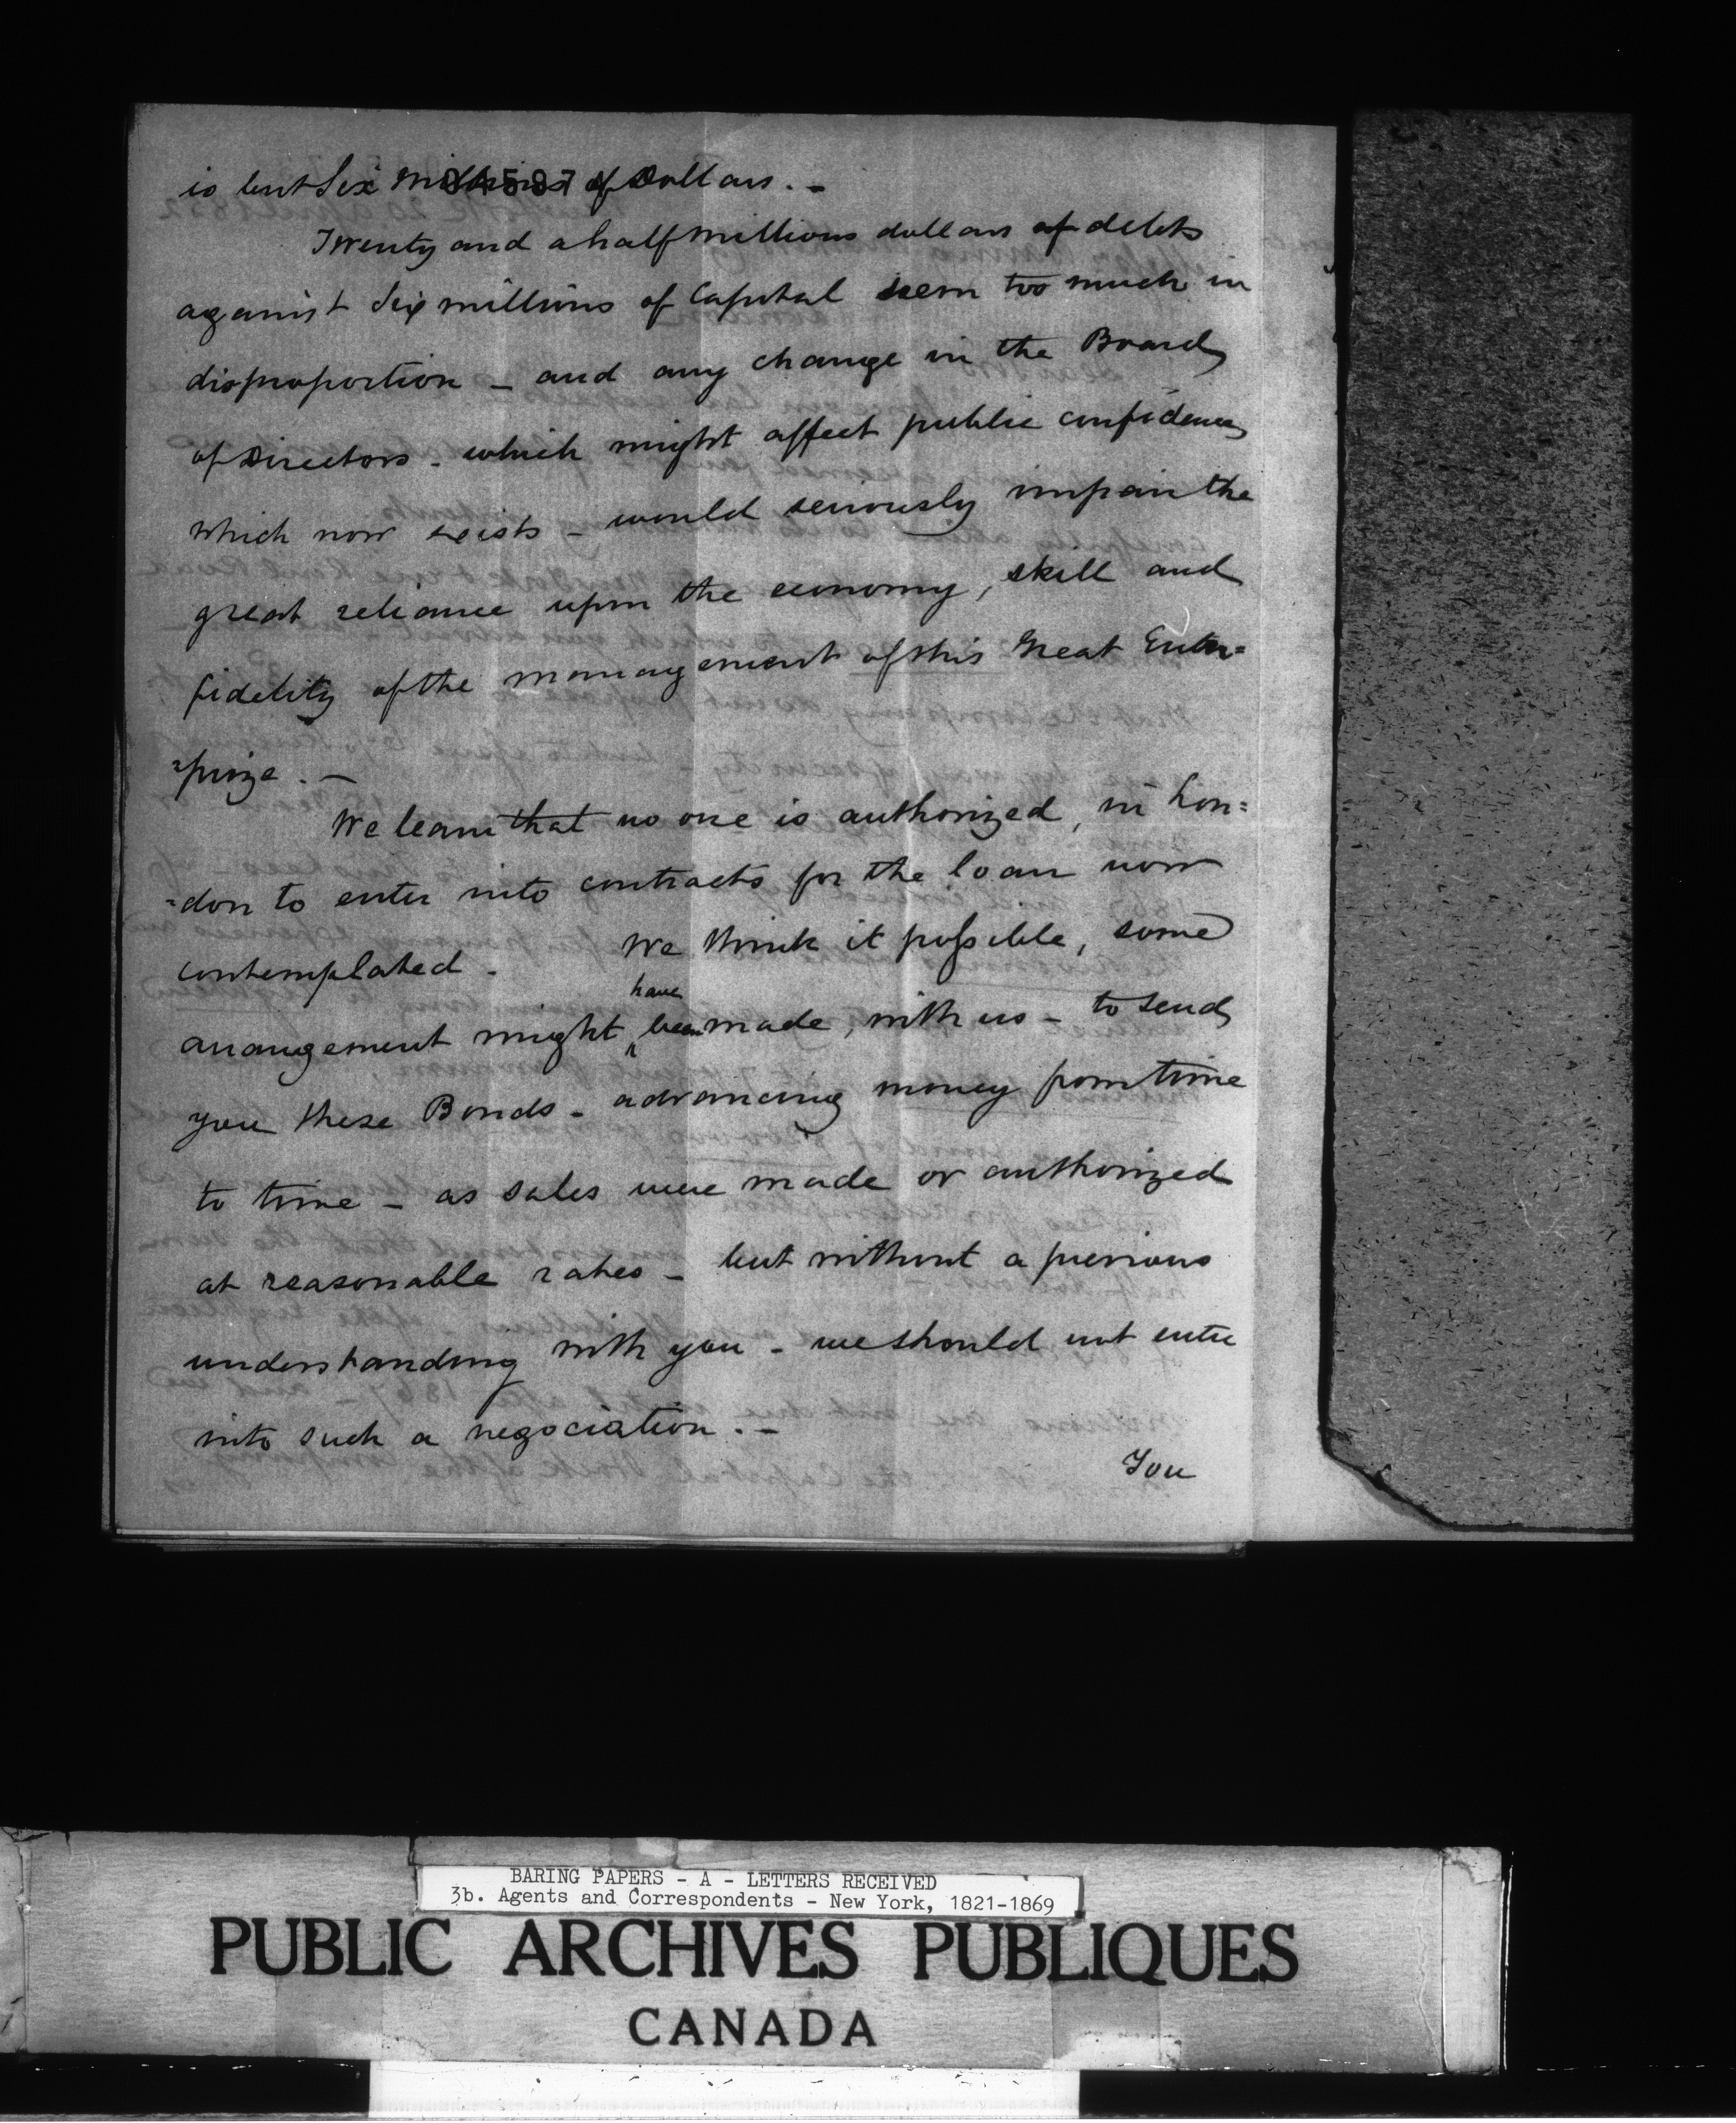 is but Six Millions of Dollars. -
84587
Twenty and a half millions dollars of debts
against Six millions of Capital seem too much in
disproportion - and any change in the Board
of Directors - which might affect public confidence
which now exists - would seriously impair the
great reliance upon the economy, skill and
fidelity of the management of this Great Enter=
=prize. -
We learn that no one is authorized, in Lon=
=don to enter into contracts for the loan now
contemplated - We think it possible, some
have
arrangement might been made, with us - to send
you these Bonds - advancing money from time
to time - as sales were made or authorized
at reasonable rates - but without a previous
understanding with you - we should not enter
into such a negociation. -
You
BARING PAPERS - A - LETTERS RECEIVED
3b. Agents and Correspondents - New York, 1821-1869
PUBLIC ARCHIVES PUBLIQUES
CANADA